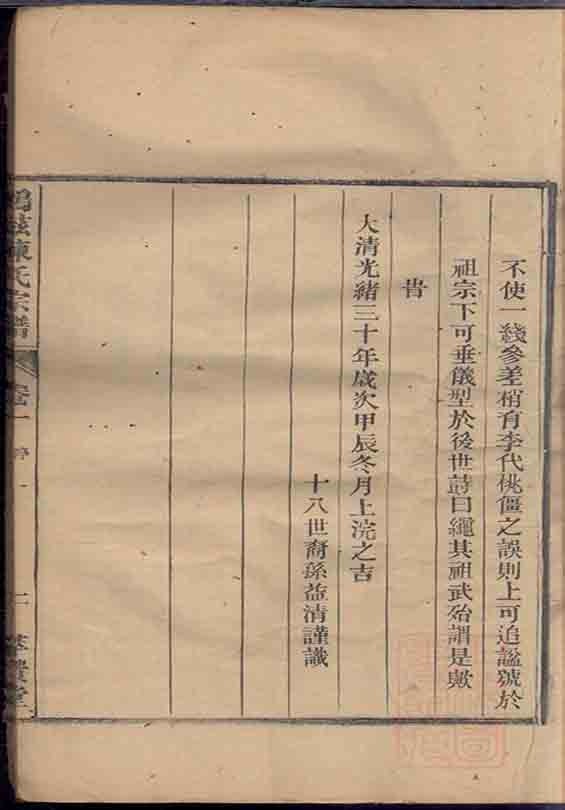 不使一綫參差稍有李代桃僵之誤則上可追謚號於
祖宗下可垂儀型於後世詩曰繩其祖武殆謂是歟
旹
大清光緒三十年歲次甲辰冬月上浣之吉
十八世裔孫益清謹識
陳氏宗譜
卷一
二